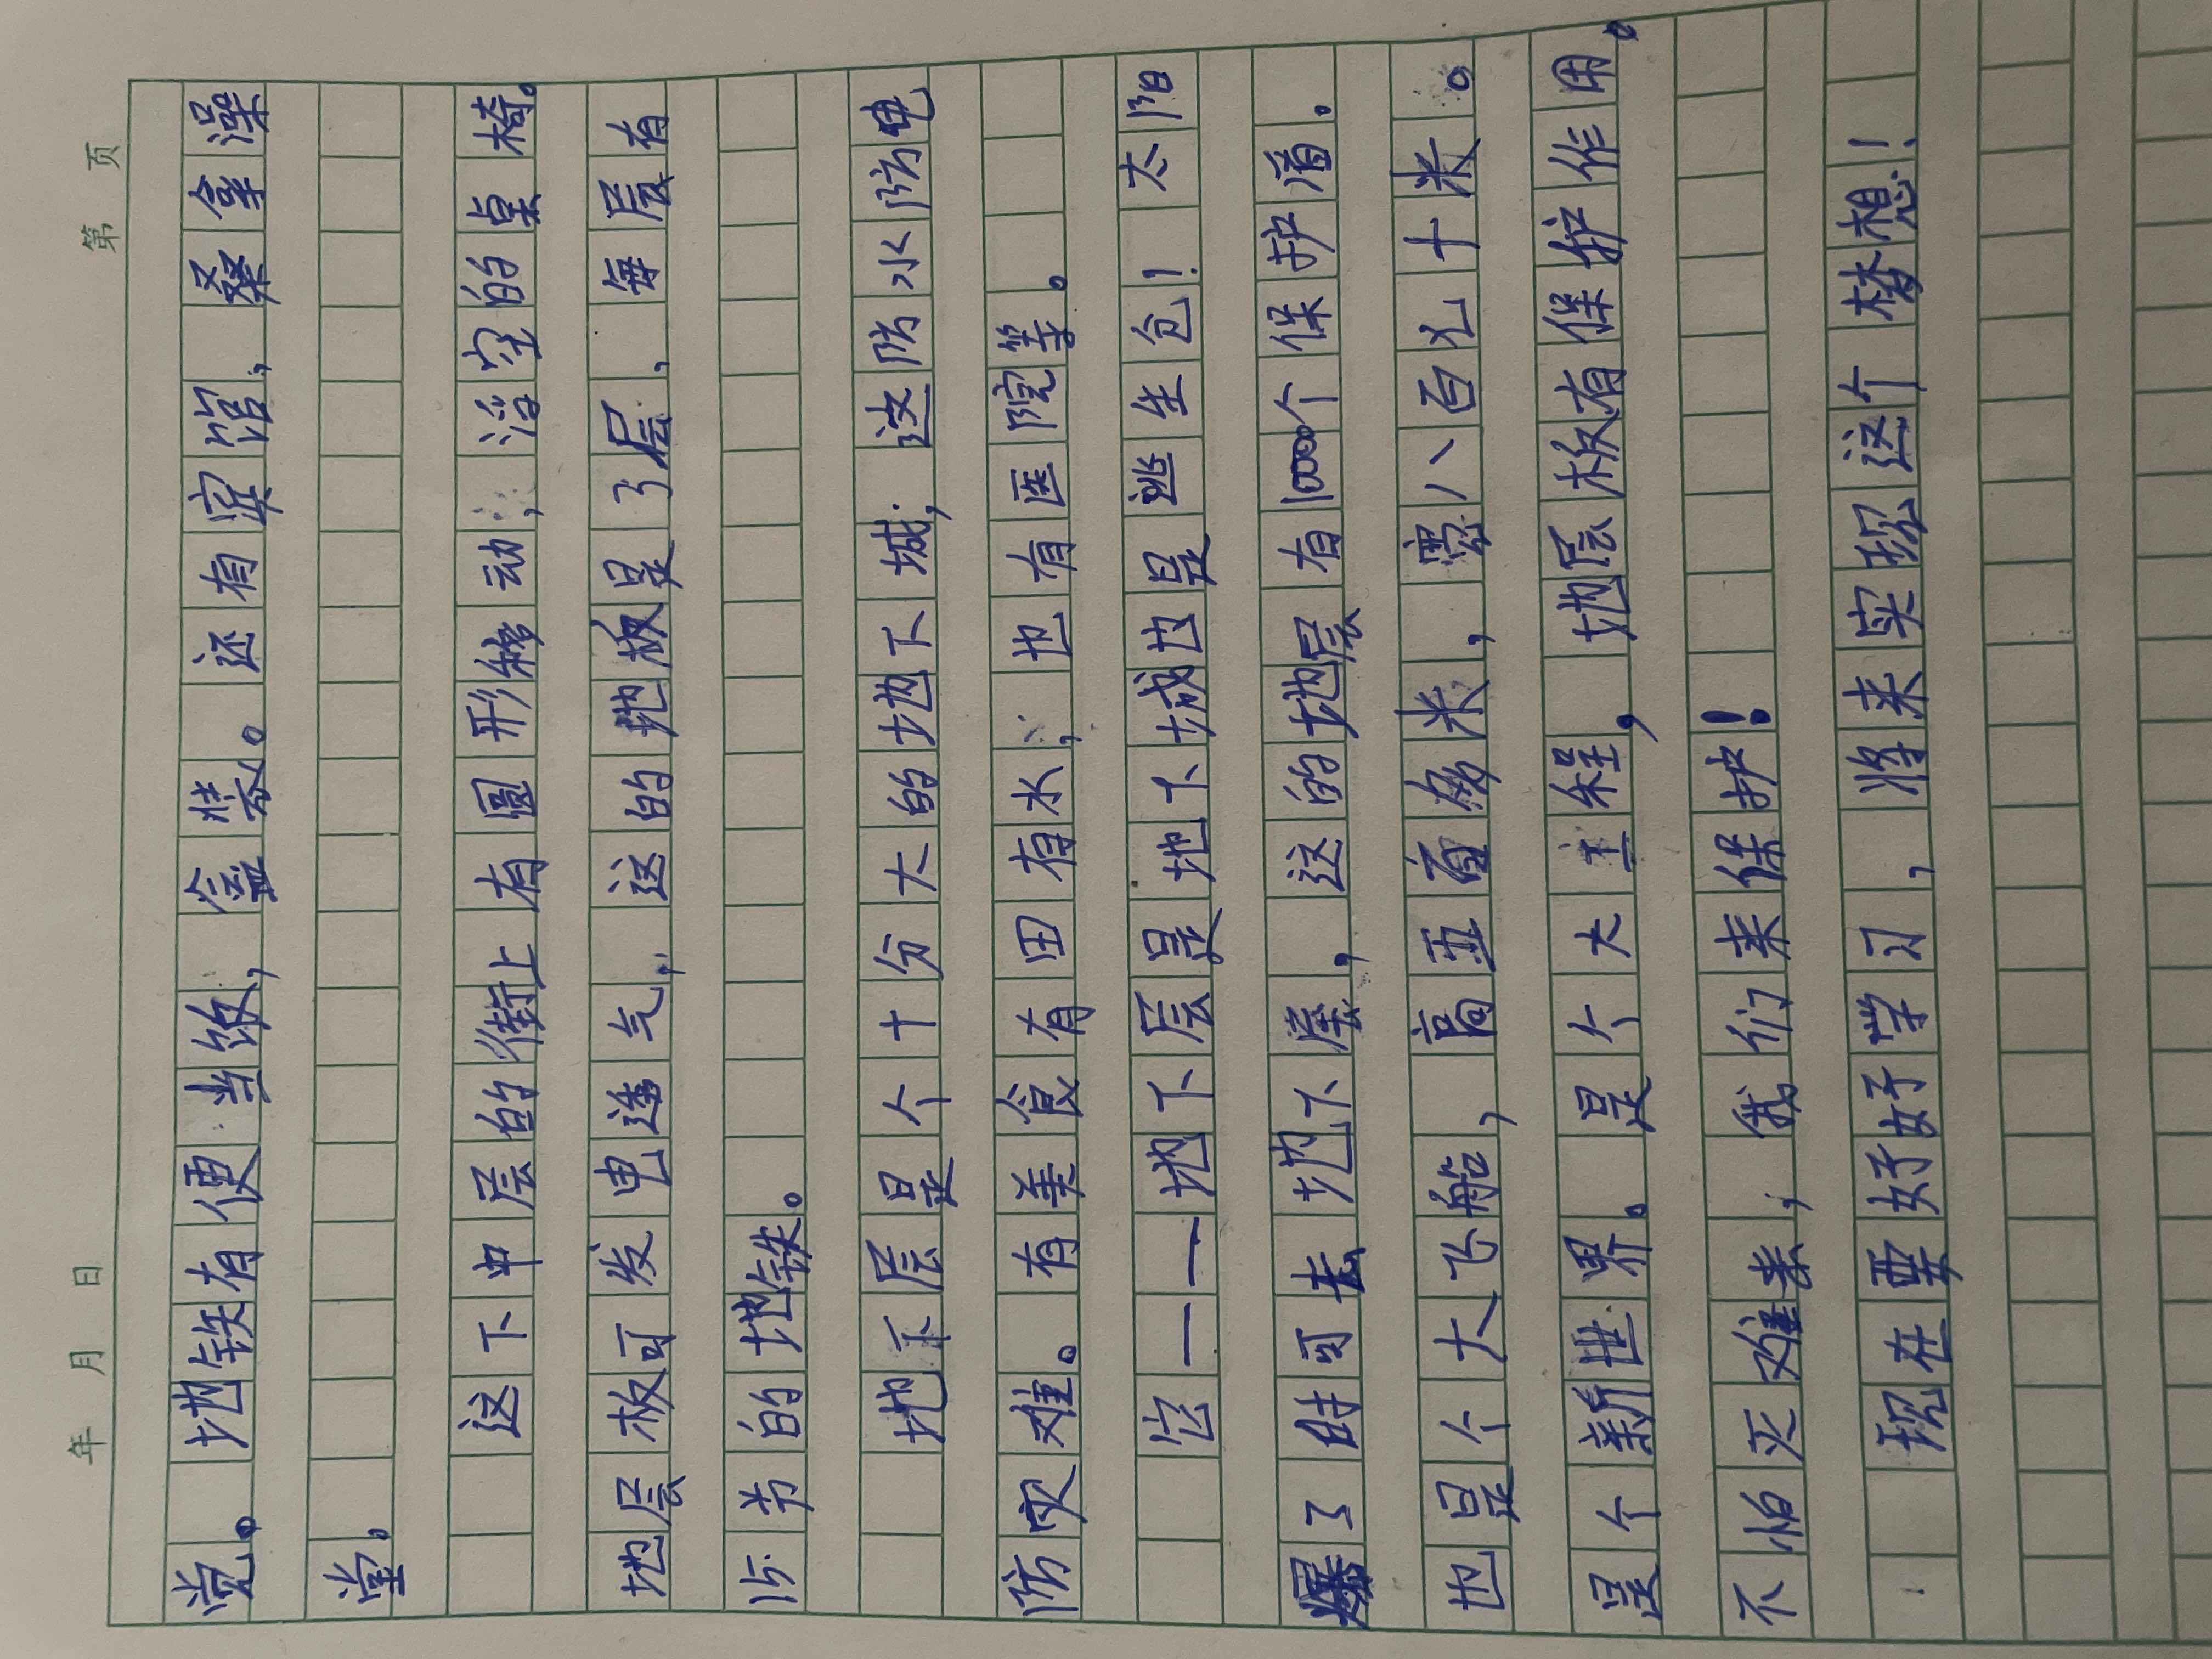 年 月 日 第 页
觉。地铁有便当饭，金装。还有宾馆，桑拿澡
堂。
这下中层的街上有圆形移动，浴空的桌椅。
地层板可发电透气，这的地板是3层，每层有
15节的地铁。
地下层是个十分大的地下城，这防水防电
防灾难。有美食有田有水，也有医院等。
它——地下层是地下城也是逃生仓！太阳
爆了时可去地下层，这的地层有10000个保护盾。
也是个大飞船，高五百多米，宽八百九十米。
是个新世界。是个大工程，地层板有保护作用。
不怕灾难来，我们来保护！
现在要好好学习，将来实现这个梦想！